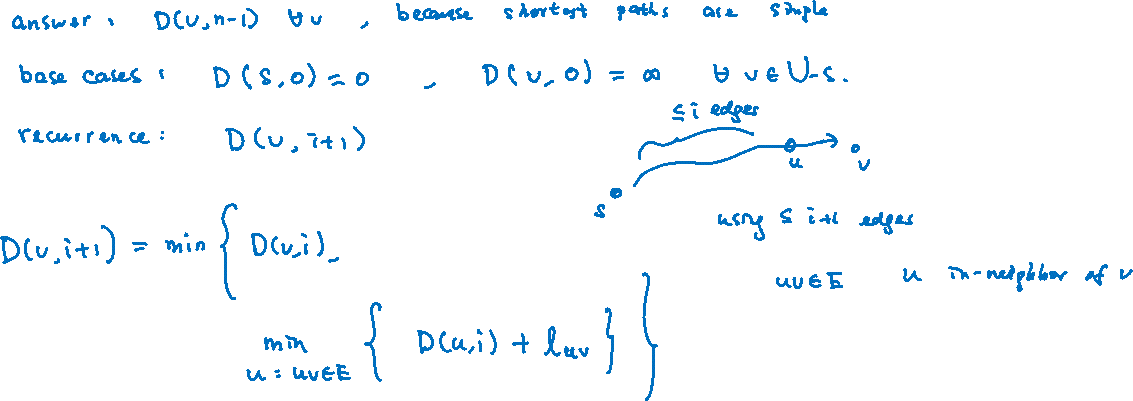 answer : D(v,n-1) ∀v , because shortest paths are simple
base cases : D(s,0) = 0 , D(v,0) = ∞ ∀ v ∈ V-s.
recurrence : D(v, i+1)
≤ i edges
u
v
s
using ≤ i+1 edges
uv∈E u in-neighbor of v
D(v,i+1) = min { D(v,i),
min { D(u,i) + l_uv } }
u : uv∈E